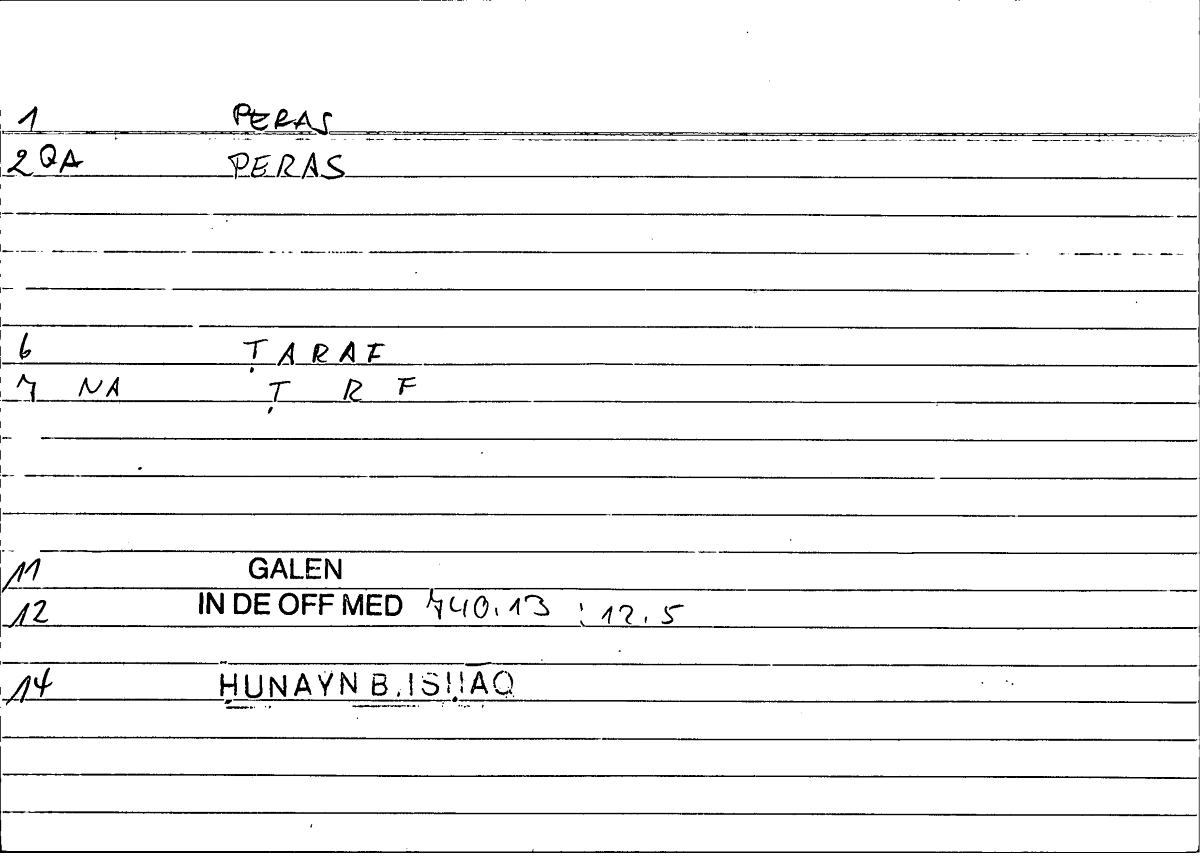 1 PERAS
2 QA PERAS
6 ṬARAF
7 NA Ṭ R F
11 GALEN
12 IN DE OFF MED 740.13 : 12.5
14 ḤUNAYN B. ISḤĀQ